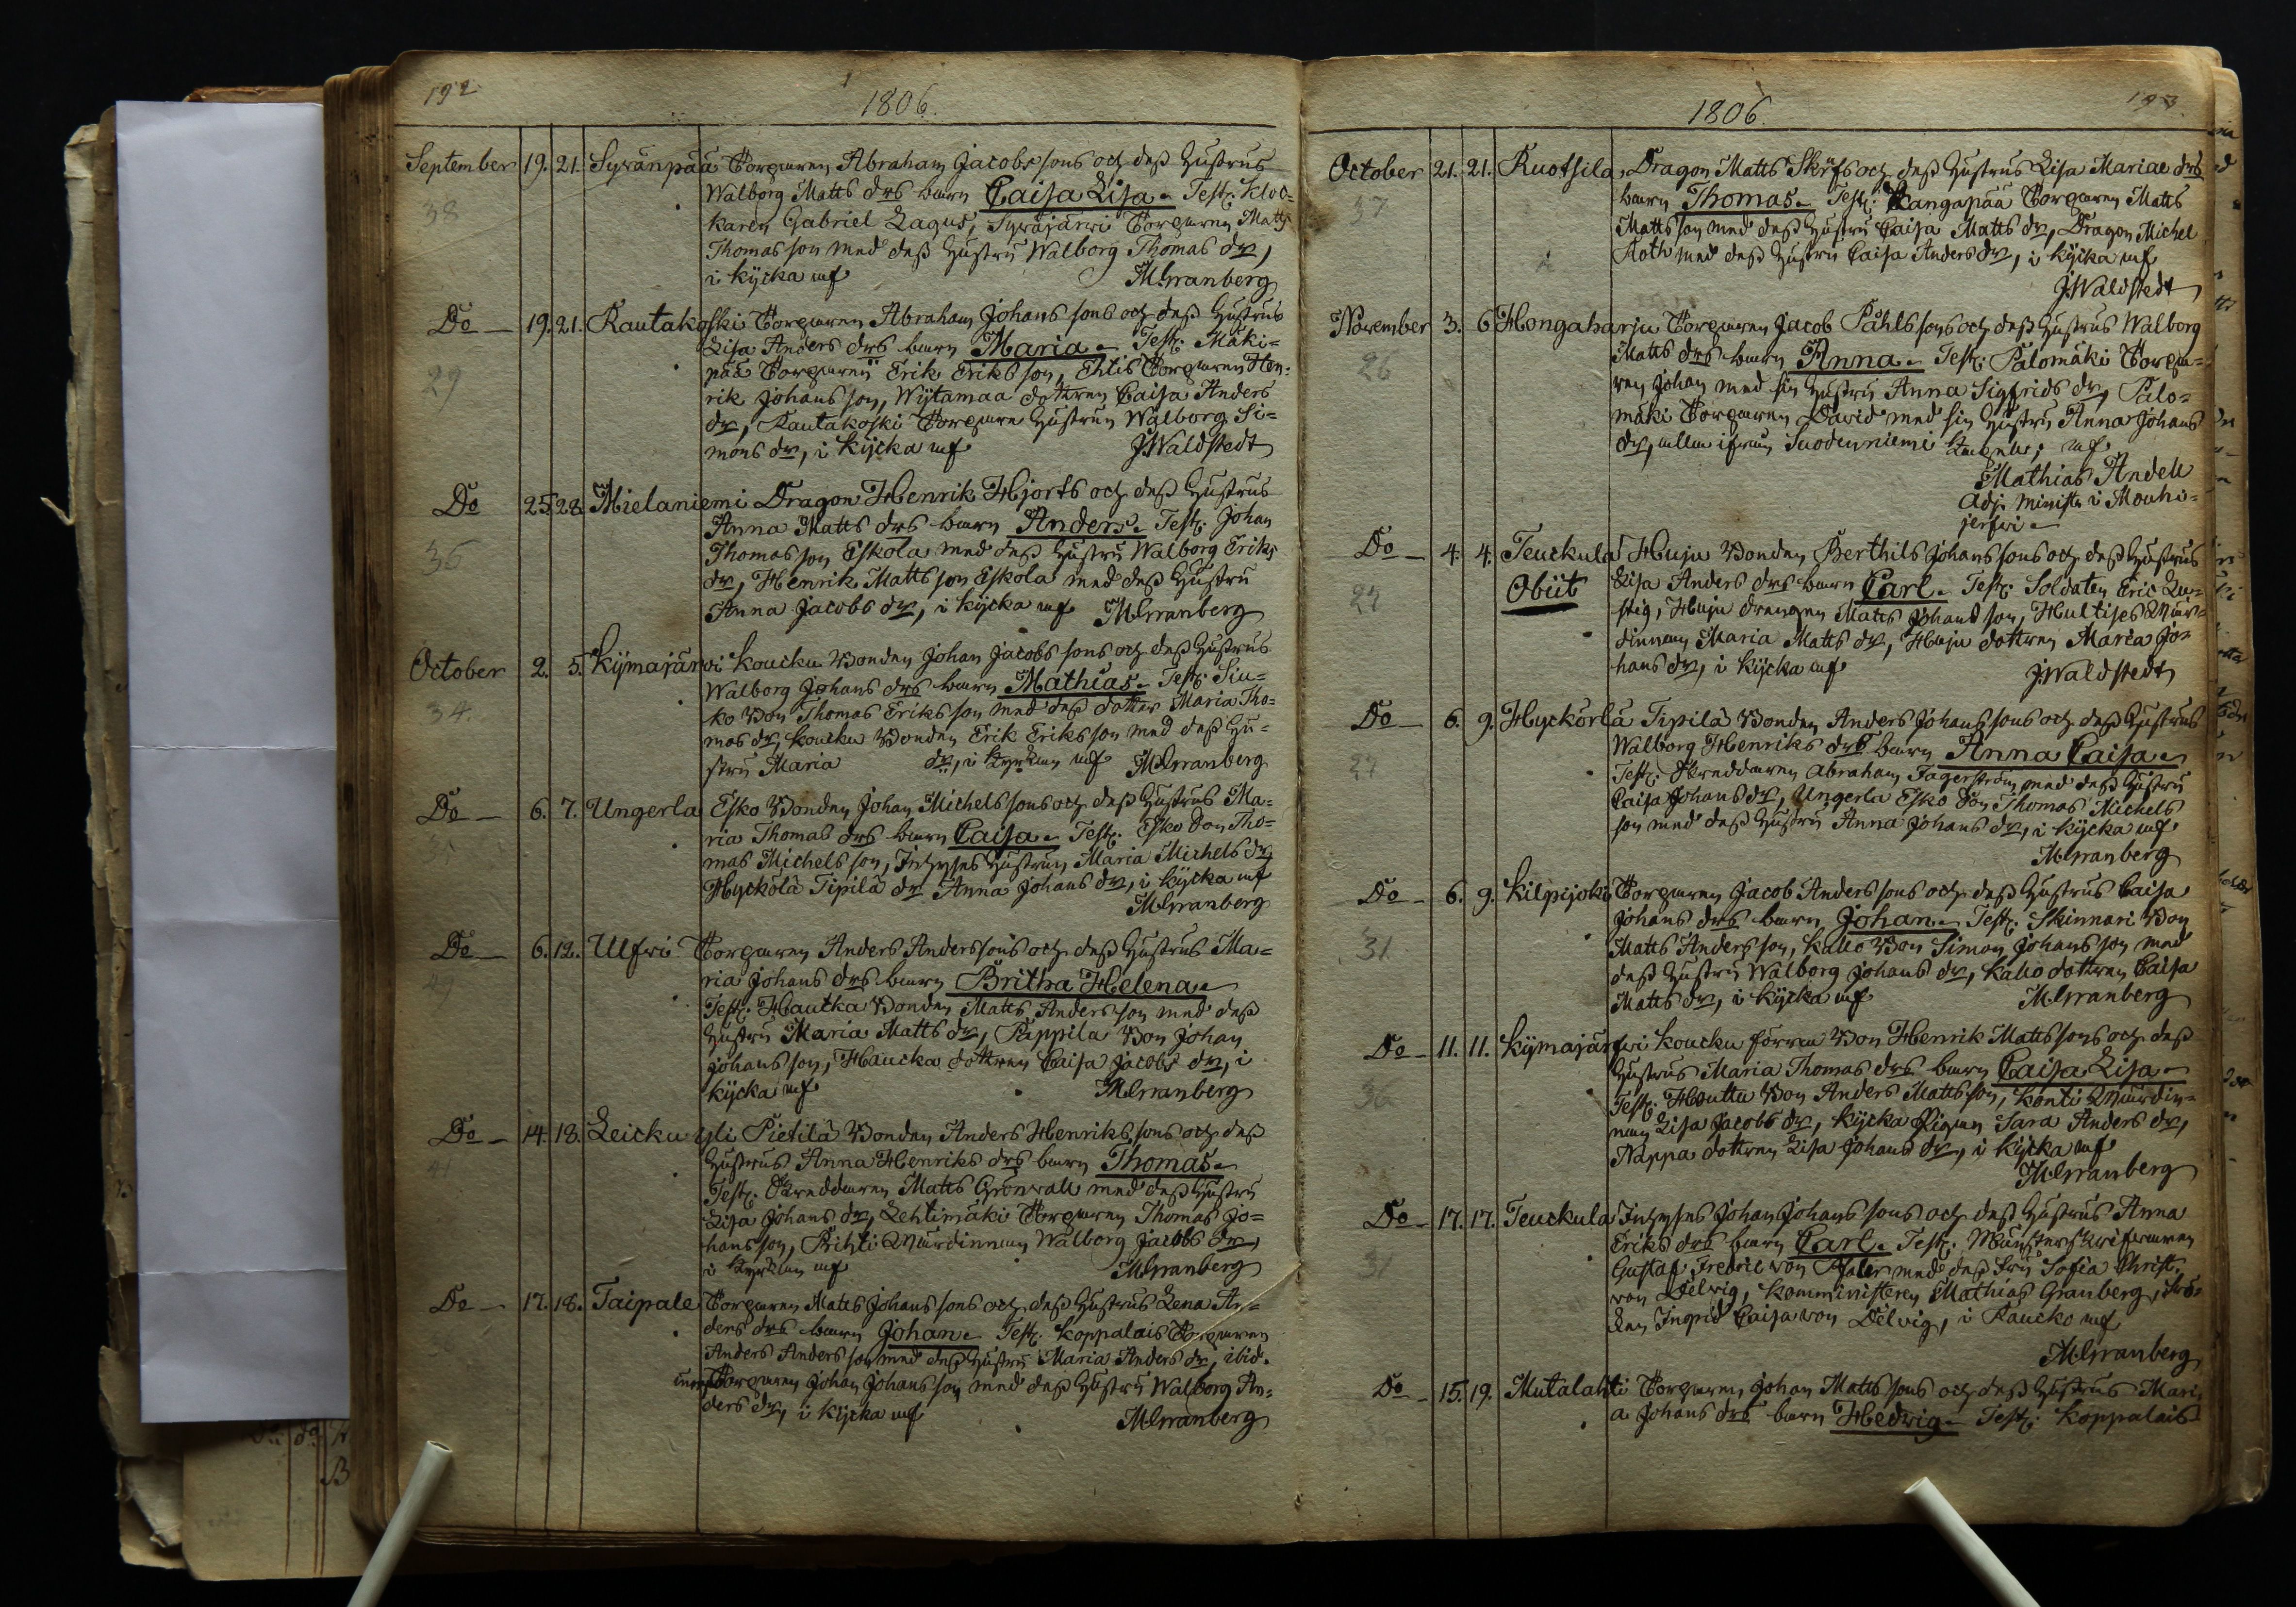 192
1806.
September 19. 21. Syränpää Torparen Abraham Jacobs sons och dess hustrus
38 Walborg Matts drs barn Caisa Lisa. Test: Kloc=
karen Gabriel Lagus, Sywäjärwi Torparen Matts
Thomas son med dess hustru Walborg Thomas dr,
i kÿcka mf MGranberg
Do 19. 21. Rautakoski Torparen Abraham Johans sons och dess hustrus
Lisa Anders drs barn Maria. Test: Mäki=
29 pää Torparen Erik Eriks son, Ehtis Torparen Hen=
rik Johans son, Wijtamaa dottren Caisa Anders
dr, Rautakoski Torpare hustrun Walborg Si=
mons dr, i kÿcka mf J:Waldstedt
Do 25. 28. Mielaniemi Dragon Henrik Hjorts och dess hustrus
Anna Matts drs barn Anders. Test: Johan
36 Thomas son Eskola med dess hustru Walborg Eriks
dr, Henrik Matts son Eskola med dess hustru
Anna Jacobs dr, i kÿcka mf MGranberg
October 2. 5. Kÿmajärwi Koucku Bonden Johan Jacobs sons och dess hustrus
34. Walborg Johans drs barn Mathias. Test: Siu=
ko Bon Thomas Eriks son med dess dotter Maria Tho=
mas dr, Koucku Bonden Erik Eriks son med dess hu=
stru Maria dr, i kyrkan mf MGranberg
Do 6. 7. Ungerla Esko Bonden Johan Michels sons och dess hustrus Ma=
ria Thomas drs barn Caisa. Test: Esko Son Tho=
mas Michels son, Inhyses hustrun Maria Michels dr,
Hyckölä Tipilä dr Anna Johans dr, i kÿcka mf
MGranberg
Do 6. 12. Ulfwi Torparen Anders Anders sons och dess hustrus Ma=
49 ria Johans drs barn Britha Helena.
Test: Haucka Bonden Matts Anders son med dess
hustru Maria Matts dr, Pappila Bon Johan
Johans son, Haucka dottren Caisa Jacobs dr, i
kÿcka mf MGranberg
Do 14. 18. Leicku yli Pietilä Bonden Anders Henriks sons och dess
41 hustrus Anna Henriks drs barn Thomas.
Test: Skreddaren Matts Grönwall med dess hustru
Lisa Johans dr, Lehtimäki Torparen Thomas Jo=
hans son, Prihti Wärdinnan Walborg Jacobs dr,
i kyrkan mf MGranberg
Do 17. 18. Taipale Torparen Matts Johans sons och dess hustrus Lena An=
ders drs barn Johan. Test: Koppalais Torparen
Anders Anders son med dess hustru Maria Anders dr, ibid.
Torparen Johan Johans son med dess hustru Walborg An=
ders dr, i kÿcka mf MGranberg
193
1806.
October 21. 21. Ruotsila, Dragon Matts Skÿfs och dess hustrus Lisa Mariae drs
37 barn Thomas. Test: Kangapää Torparen Matts
Matts son med dess hustru Caisa Matts dr, Dragon Michel
Roth med dess hustru Caisa Anders dr, i kÿcka mf
J:Waldstedt
November 3. 6 Hongaharju Torparen Jacob Påhls sons och dess hustrus Walborg
Matts drs barn Anna. Test: Palomäki Torpa=
26 ren Johan med sin hustru Anna Sigfrids dr, Palo=
mäki Torparen David med sin hustru Anna Johans
dr, alla ifrån Suodenniemi Capell; mf
Mathias Andell
Adj. Minist: i Mouhi=
jerfwi
Do 4. 4. Teuckula Huju Bonden Berthils Johans sons och dess hustrus
27 Obiit Lisa Anders drs barn Carl. Test: Soldaten Eric Lu=
stig, Huju drengen Matts Johans son, Hultises Wär=
dinnan Maria Matts dr, Huju dottren Maria Jo=
hans dr, i kÿcka mf J:Waldstedt
Do 6. 9. Hyckörlä Tipilä Bonden Anders Johans sons och dess hustrus
Walborg Henriks drs barn Anna Caisa.
27 Test: Skreddaren Abraham Fagerström med dess hustru
Caisa Johans dr, Ungerla Esko Son Thomas Michels
son med dess hustru Anna Johans dr, i kÿcka mf.
MGranberg
Do 6. 9. Kilpijoki Torparen Jacob Anders sons och dess hustrus Caisa
Johans drs barn Johan. Test: Skinnari Bon
31 Matts Anders son, Kallo Bon Simon Johans son med
dess hustru Walborg Johans dr, Kallo dottren Caisa
Matts dr, i kÿcka mf MGranberg
Do 11. 11. Kÿmajärfwi Koucku förra Bon Henrik Matts sons och dess
36 hustrus Maria Thomas drs barn Caisa Lisa.
Test: Houtta Bon Anders Matts son, Könti Wärdin=
nan Lisa Jacobs dr, Kÿcka Pigan Sara Anders dr,
Nappa dottren Lisa Johans dr, i kÿcka mf
MGranberg
Do 17. 17. Teuckula Inhyses Johan Johans sons och dess hustrus Anna
Eriks drs barn Carl. Test: Mönsterskrifwaren
31 Gustaf Fredric von Pfaler med dess Fru Sofia Christ.
von Delwig, Komministern Mathias Granberg, Frö=
ken Ingrid Caisa von Delvig, i Raucko mf
MGranberg
Do 15. 19. Mutalahti Torparen Johan Matts sons och dess hustrus Mari=
a Johans drs barn Hedwig. Test: Koppalais